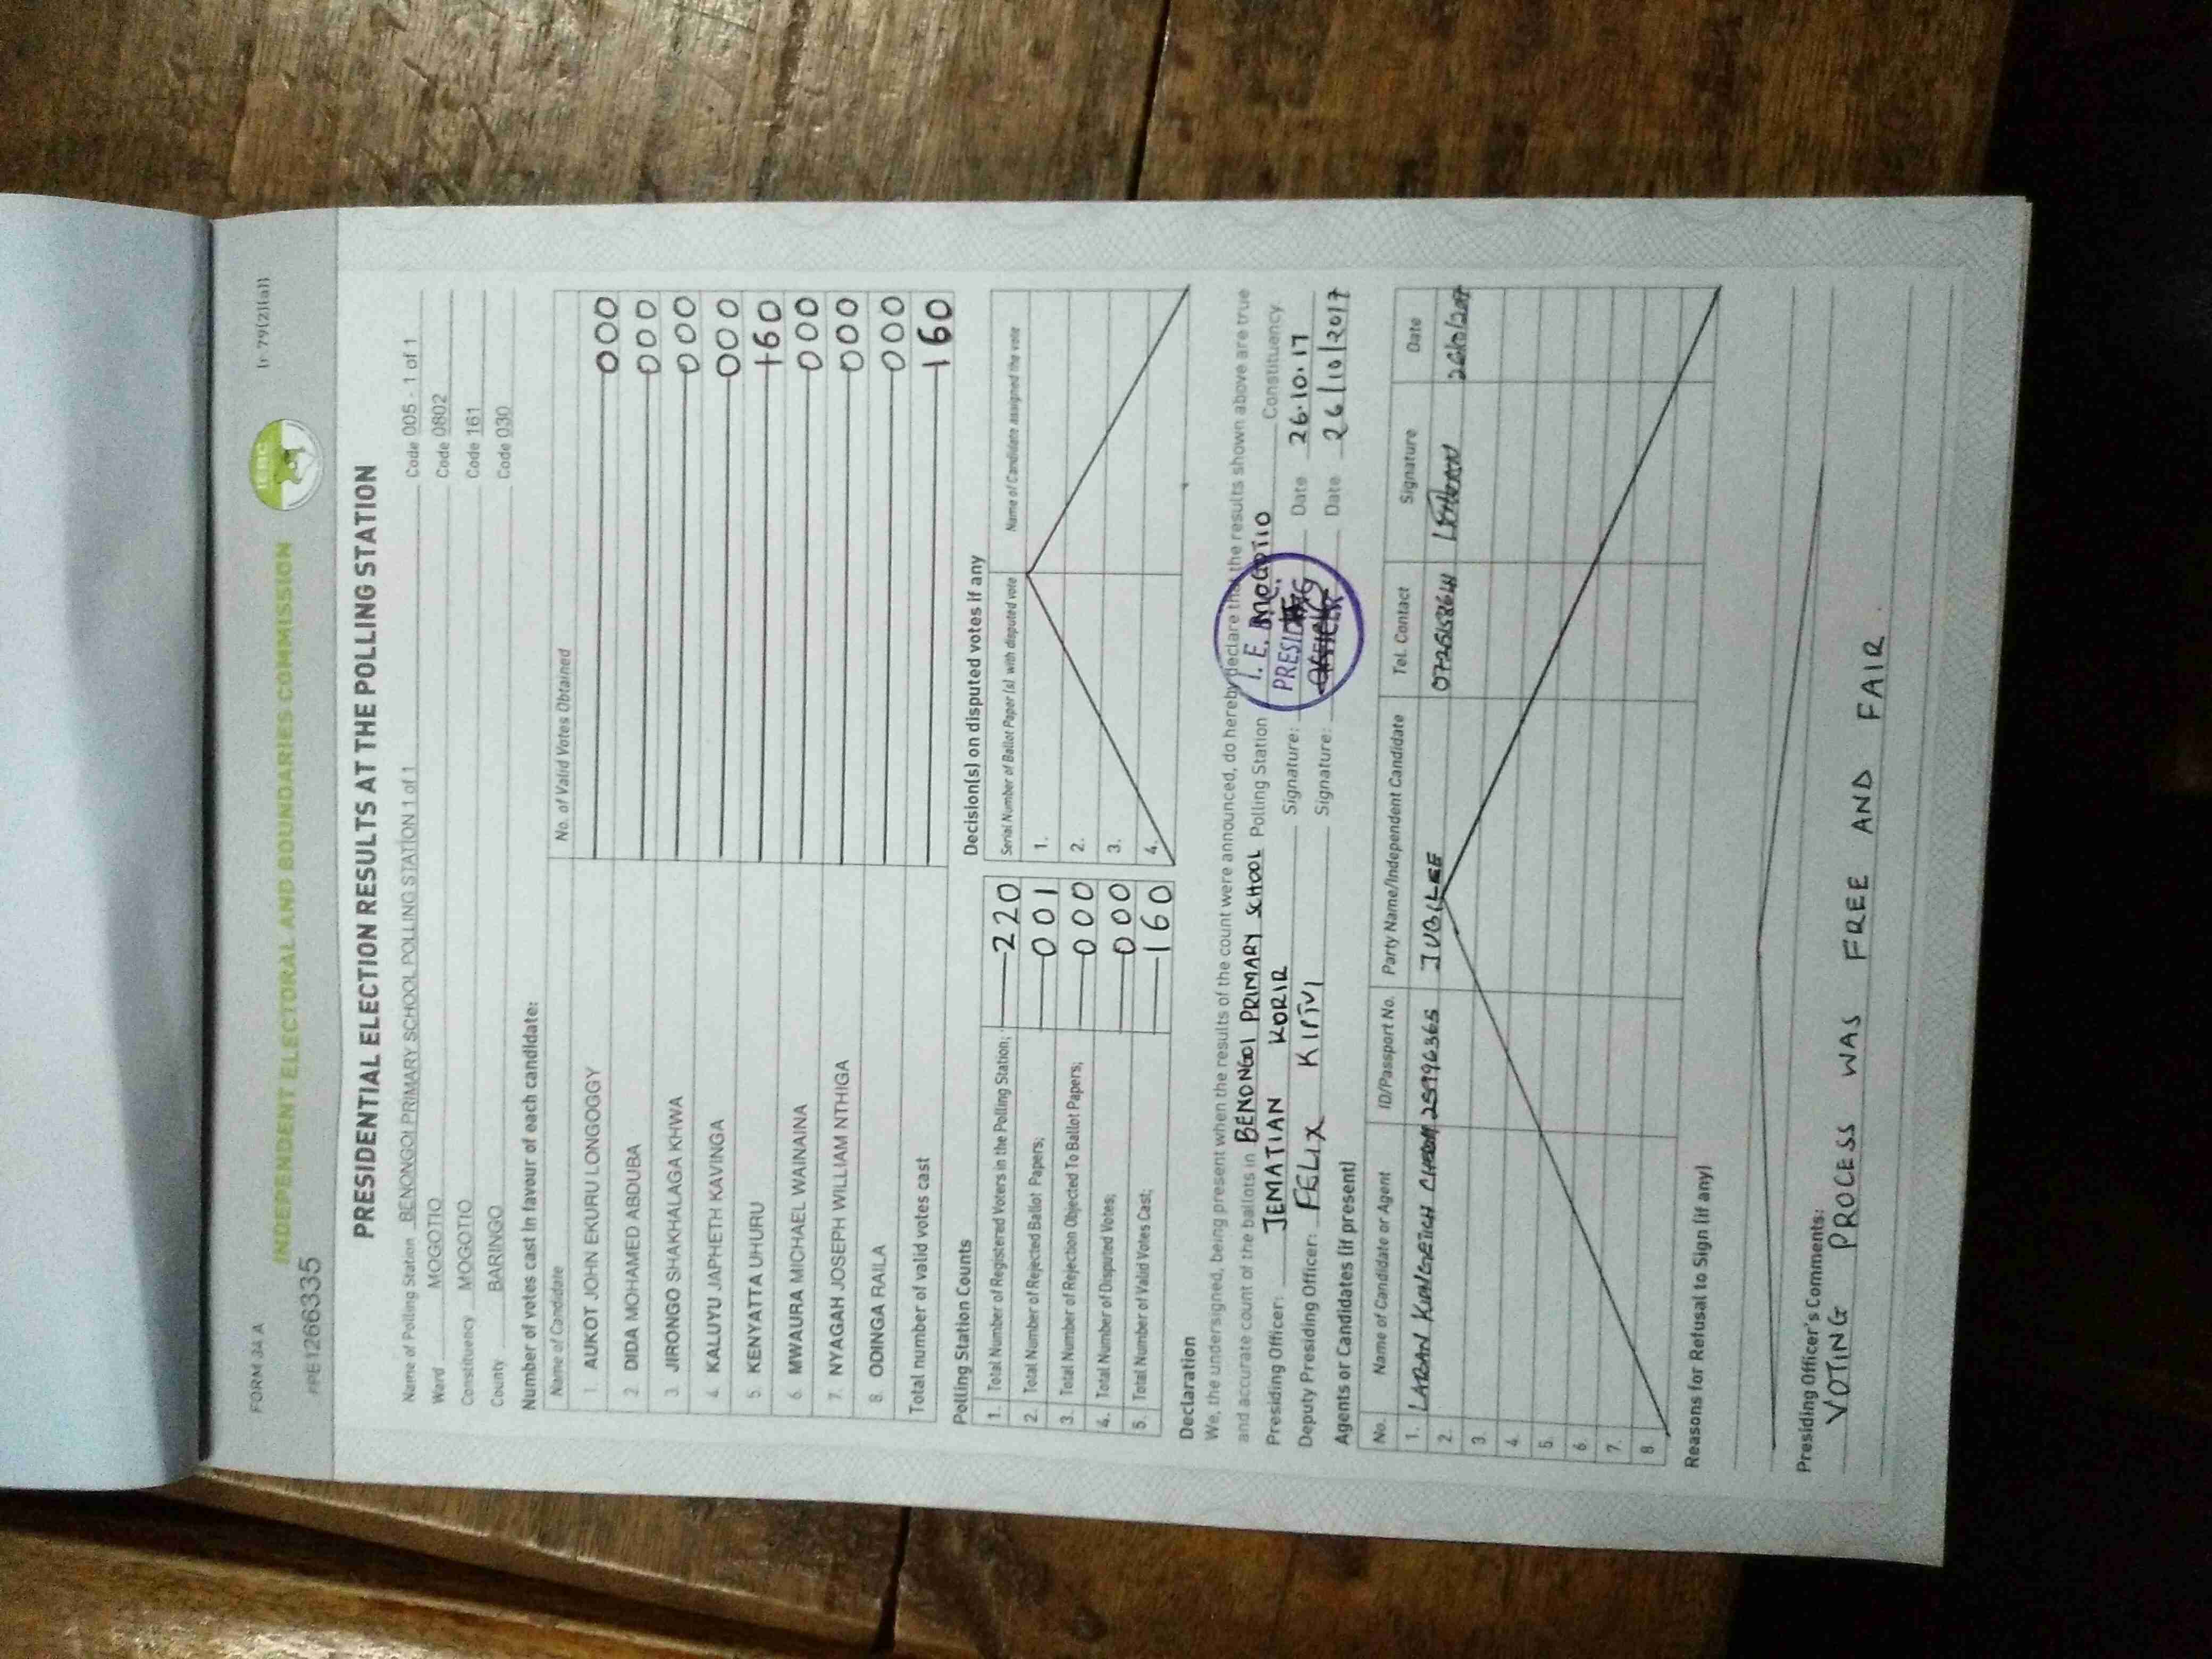 FORM 34 A
(r 79(2)(a))
INDEPENDENT ELECTORAL AND BOUNDARIES COMMISSION
IEBC
PRESIDENTIAL ELECTION RESULTS AT THE POLLING STATION
Name of Polling Station BENONGOI PRIMARY SCHOOL POLLING STATION 1 of 1 Code 005 - 1 of 1
Ward MOGOTIO Code 0802
Constituency MOGOTIO Code 161
County BARINGO Code 030
Number of votes cast in favour of each candidate:
Name of Candidate No. of Valid Votes Obtained
1. AUKOT JOHN EKURU LONGOGGY 000
2. DIDA MOHAMED ABDUBA 000
3. JIRONGO SHAKHALAGA KHWA 000
4. KALUYU JAPHETH KAVINGA 000
5. KENYATTA UHURU 160
6. MWAURA MICHAEL WAINAINA 000
7. NYAGAH JOSEPH WILLIAM NTHIGA 000
8. ODINGA RAILA 000
Total number of valid votes cast 160
Polling Station Counts
1. Total Number of Registered Voters in the Polling Station; 220
2. Total Number of Rejected Ballot Papers; 001
3. Total Number of Rejection Objected To Ballot Papers; 000
4. Total Number of Disputed Votes; 000
5. Total Number of Valid Votes Cast; 160
Decision(s) on disputed votes if any
Serial Number of Ballot Paper (s) with disputed vote Name of Candidate assigned the vote
1.
2.
3.
4.
Declaration
We, the undersigned, being present when the results of the count were announced, do hereby declare that the results shown above are true
and accurate count of the ballots in BENONGOI PRIMARY SCHOOL Polling Station MOGOTIO Constituency
Presiding Officer: JEMATIAN KORIR Signature: Date 26.10.17
Deputy Presiding Officer: FELIX Signature: Date 26/10/2017
I.E.B.C.
PRESIDING
OFFICER
Agents or Candidates (if present)
No. Name of Candidate or Agent ID/Passport No. Party Name/Independent Candidate Tel. Contact Signature Date
1. LABAN 25996365 JUBILEE 26/10/2017
2.
3.
4.
5.
6.
7.
8.
Reasons for Refusal to Sign (if any)
Presiding Officer's Comments:
VOTING PROCESS WAS FREE AND FAIR.